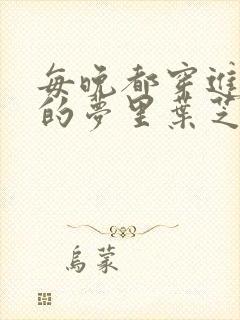 每晚都穿進
的夢里葉芝
烏蒙